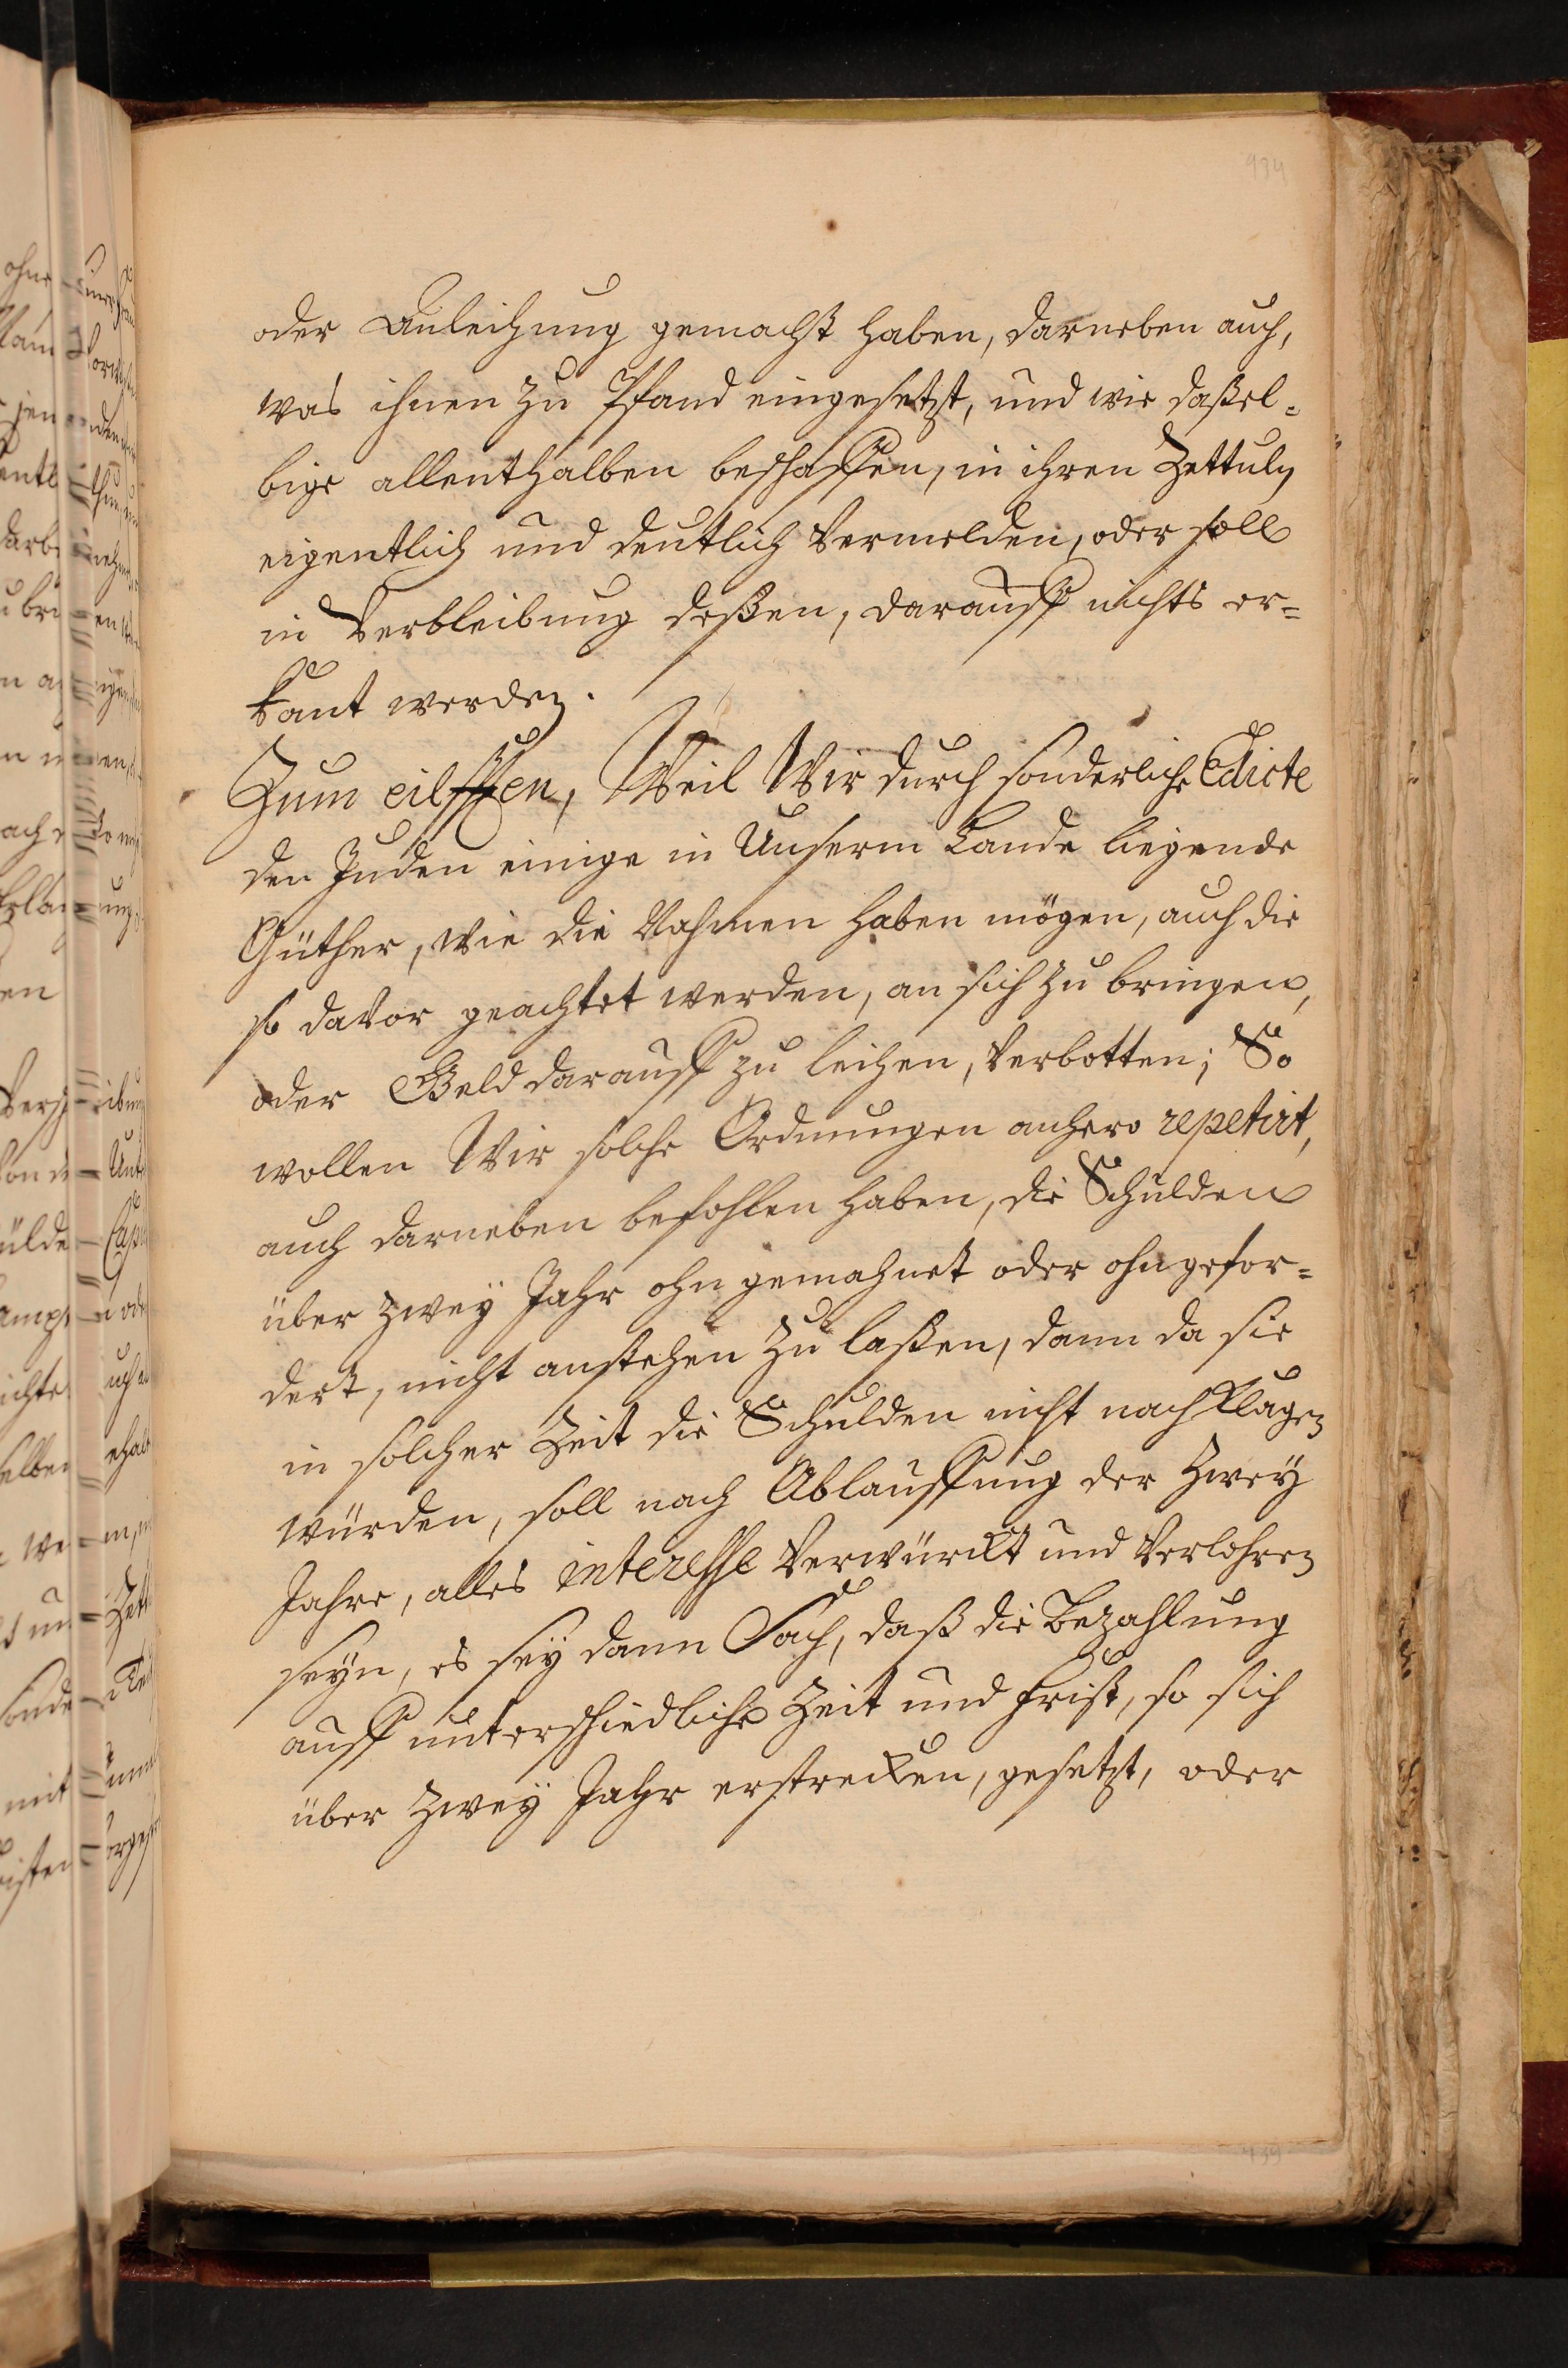 934
oder Anleihung gemacht haben, darneben auch,
was ihnen zu Pfand eingesetzt, und wie daßel-
bige allenthalben beschaffen, in ihren Zettuln
eigentlich und deutlich vermelden, oder soll
in Verbleibung deßen, darauff nichts er-
kant werden.
Zum eilfften, Weil Wir durch sonderliche Edicte
den Juden einige in Unserm Lande liegende
Güther, wie die Nahmen haben mögen, auch die
so davor geachtet werden, an sich zu bringen,
oder Geld darauff zu leihen, verbotten; So
wollen Wir solche Ordnungen anhero repetirt,
auch darneben befohlen haben, die Schulden
über zwey Jahr ohn gemahnet oder ohngefor-
dert, nicht anstehen zu laßen, dann da sie
in solcher Zeit die Schulden nicht nach klagen
würden, soll nach Ablauffung der zwey
Jahre, alles interesse verwürckt und verlohren
seyn, es sey dann Sach, daß die Bezahlung
auff unterschiedliche Zeit und Frist, so sich
über zwey Jahr erstrecken, gesetzt, oder